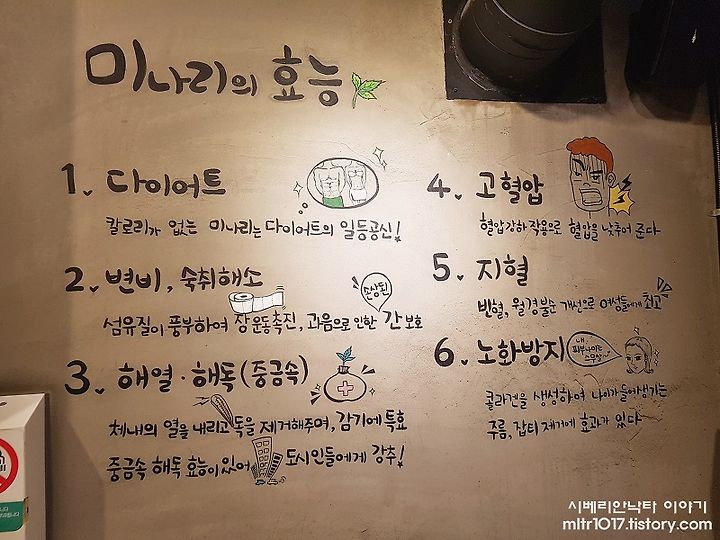 미나리의 효능
1. 다이어트
칼로리가 없는 미나리는 다이어트의 일등공신!
2. 변비, 숙취해소
손상된
섬유질이 풍부하여 장 운동촉진, 과음으로 인한 간 보호
3. 해열·해독(중금속)
체내의 열을 내리고 독을 제거해주며, 감기에 특효
중금속 해독 효능이 있어 도시인들에게 강추!
4. 고혈압
혈압강하 작용으로 혈압을 낮추어 준다
5. 지혈
빈혈, 월경불순 개선으로 여성들에게 최고
6. 노화방지
내
피부나이는
스무살~
콜라겐을 생성하여 나이가 들어 생기는
주름, 잡티 제거에 효과가 있다
시베리안낙타 이야기
mltr1017.tistory.com